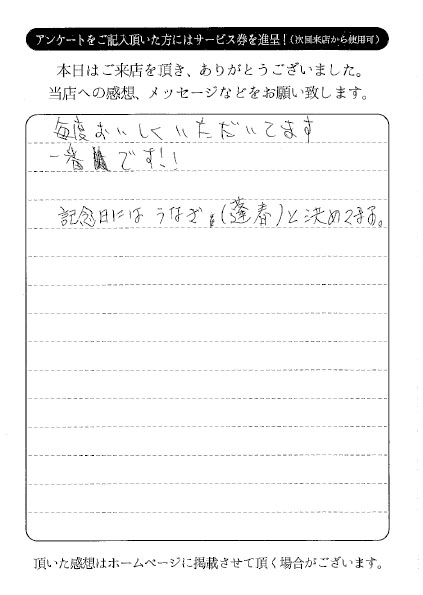 アンケートをご記入頂いた方にはサービス券を進呈！(次回来店から使用可)
本日はご来店を頂き、ありがとうございました。
当店への感想、メッセージなどをお願い致します。
毎度おいしくいただいてます
一番です!!
記念日にはうなぎ(蓬春)と決めてます。
頂いた感想はホームページに掲載させて頂く場合がございます。